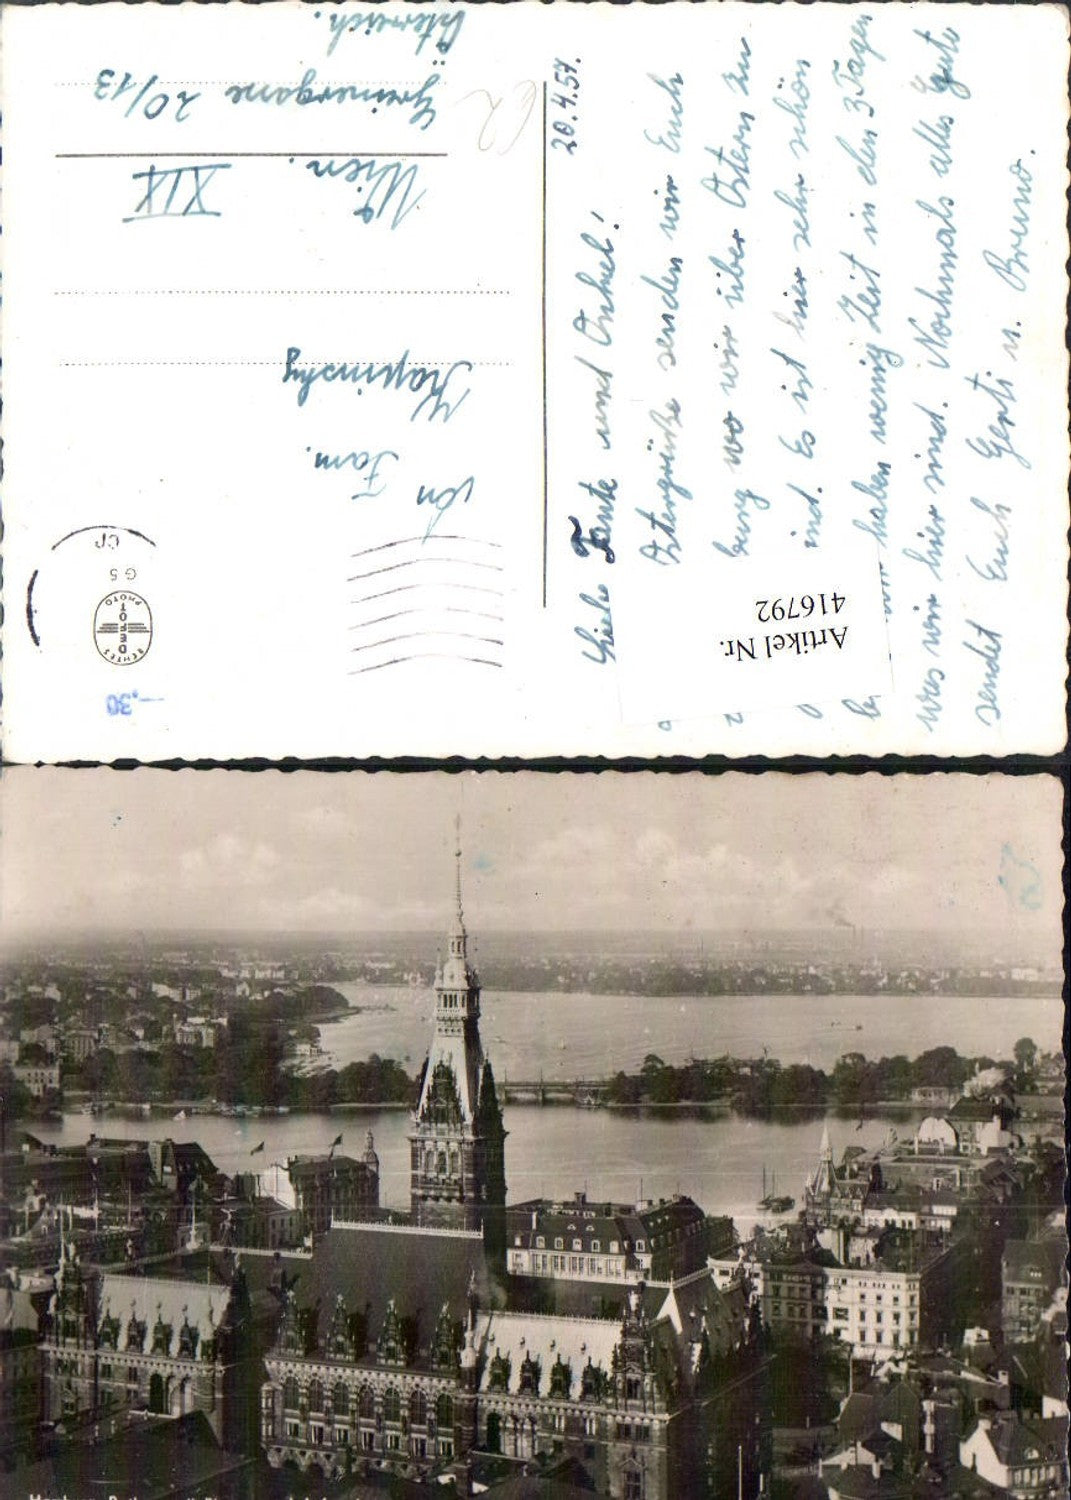 20.4.57.
Liebe Tante und Onkel!
Ostergrüße senden wir Euch
burg wo wir über Ostern zu
sind. Es ist hier sehr schön
haben wenig Zeit in den 3 Tagen
was wir hier sind. Nochmals alles Gute
sendet Euch Gerti u. Bruno.
Artikel Nr.
416792
An
Fam.
Wien.
XIX
Greinergasse 20/13
Österreich.
-.30
ECHTES
DEFOT
PHOTO
G 5
CP